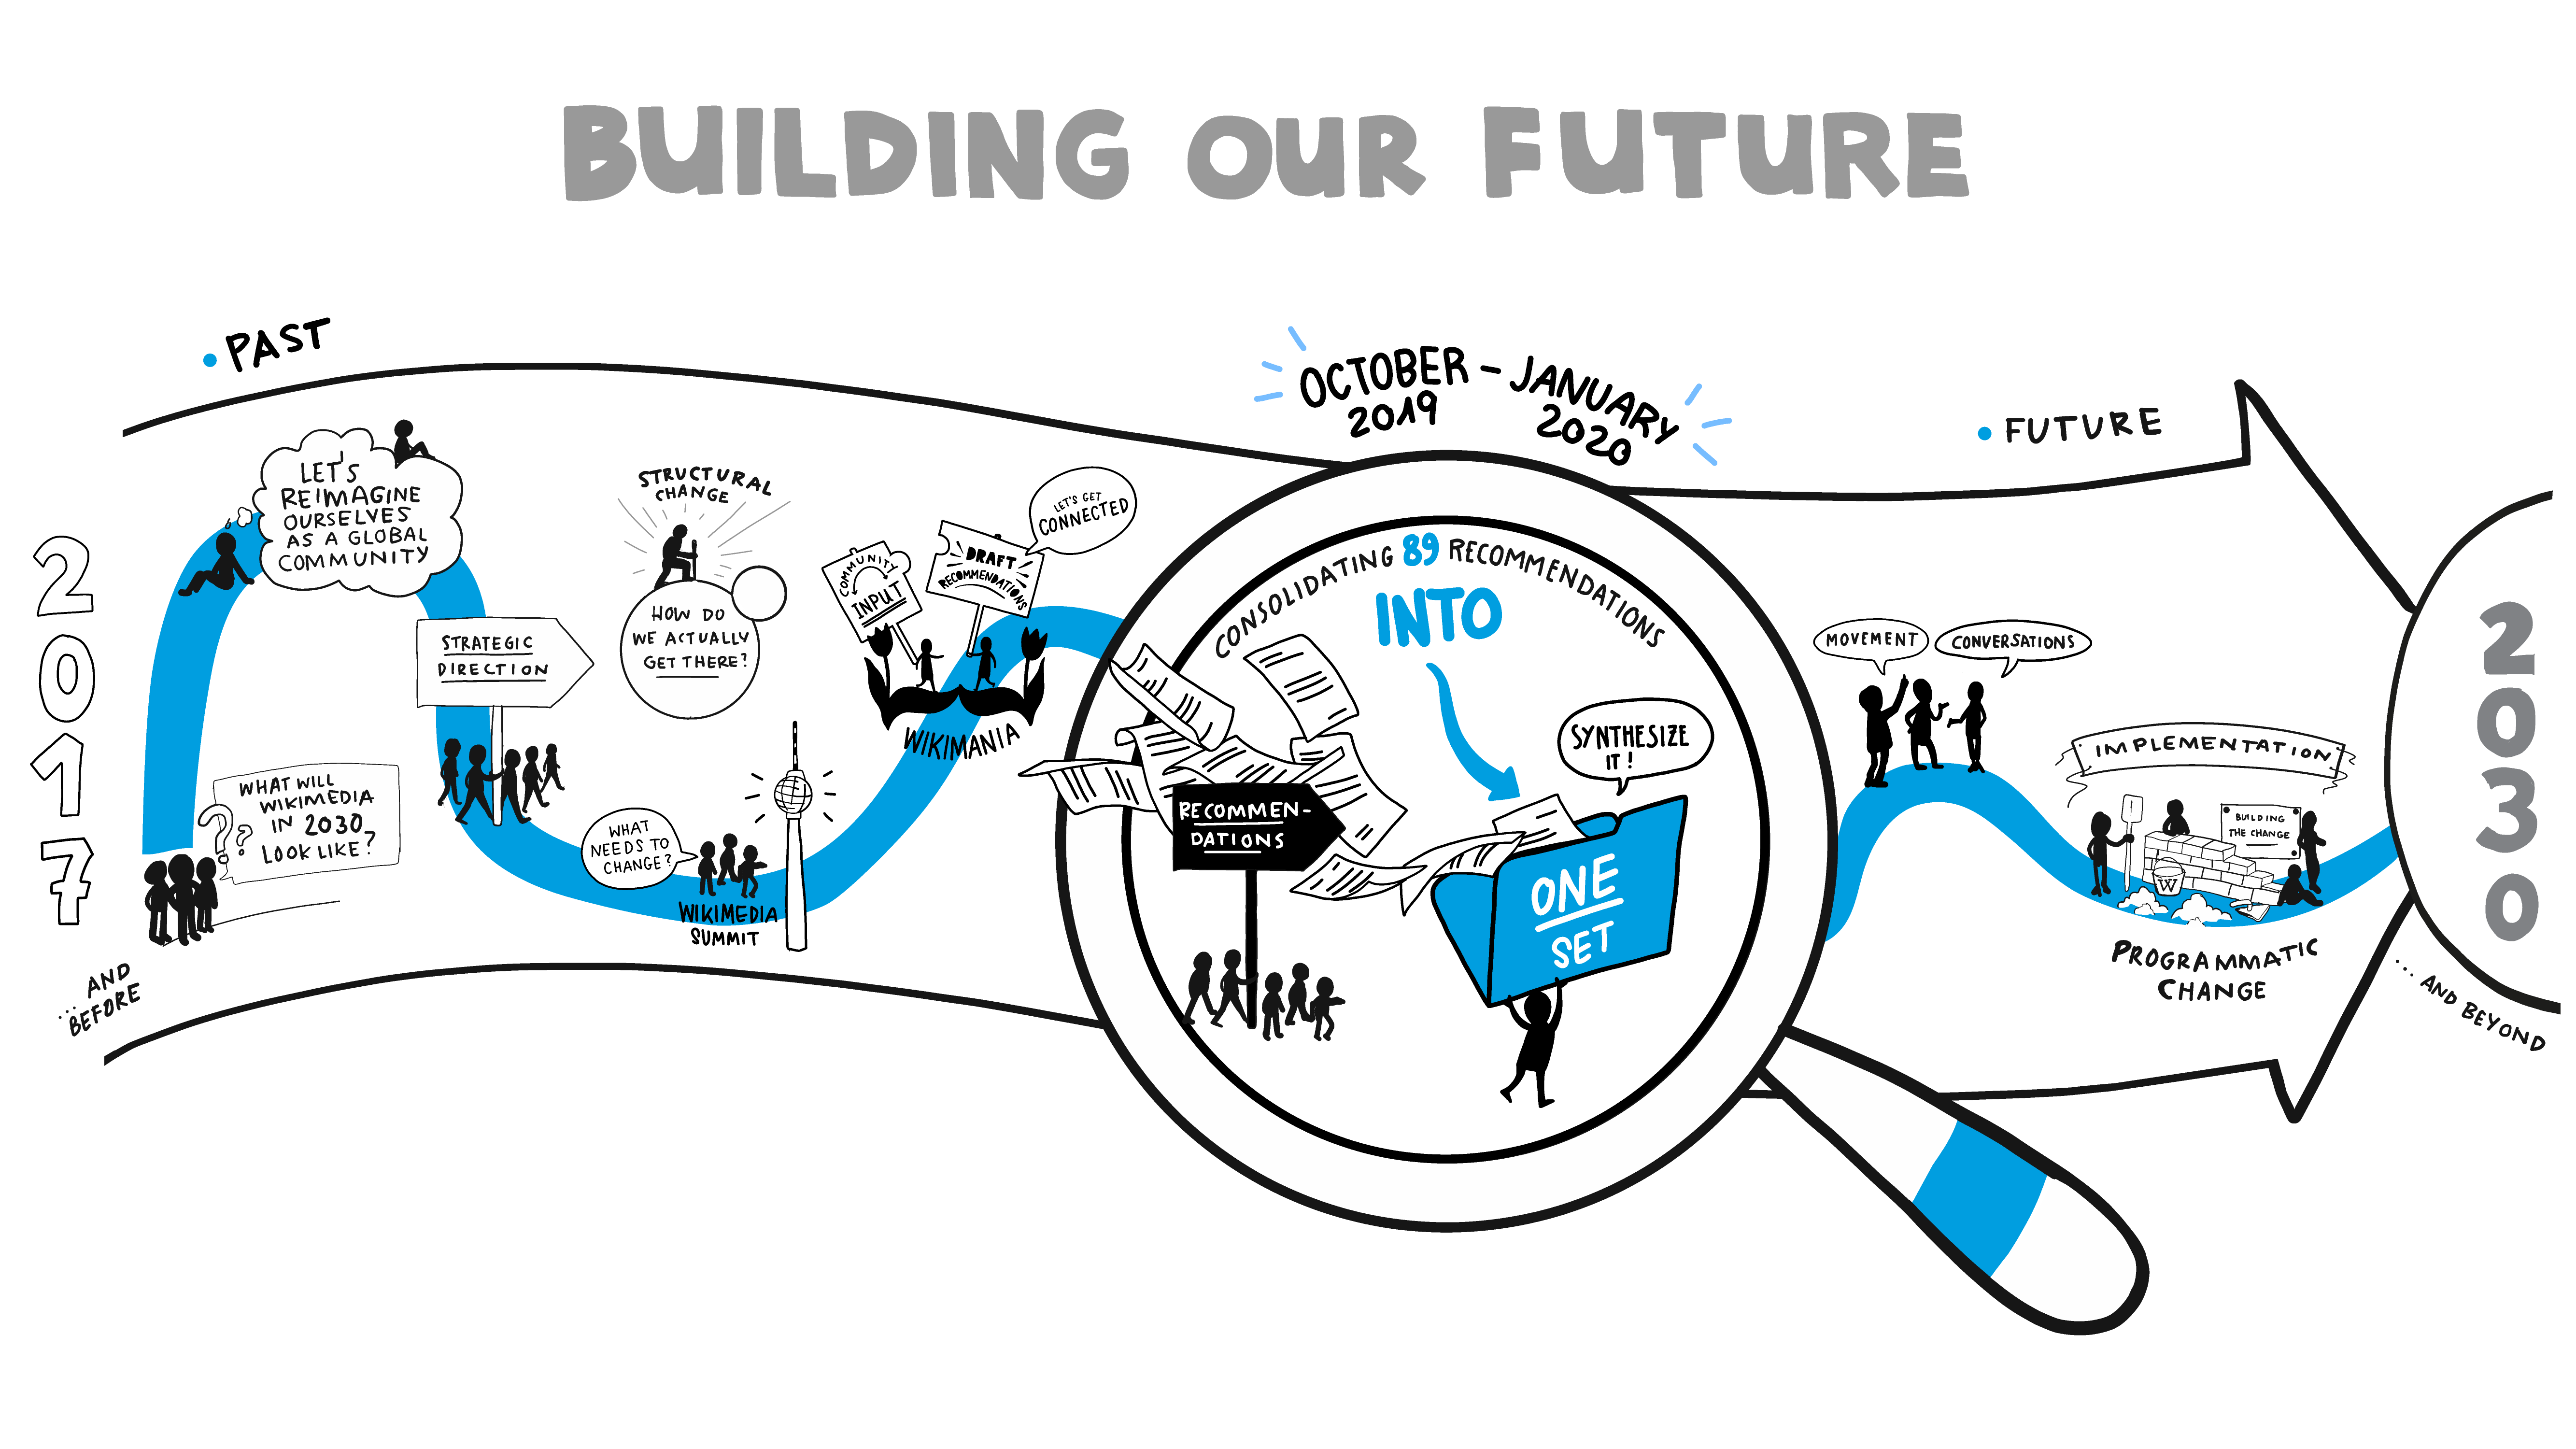 BUILDING OUR FUTURE
• PAST
2017
... AND
BEFORE
WHAT WILL
WIKIMEDIA
IN 2030
LOOK LIKE?
? ?
LET'S
REIMAGINE
OURSELVES
AS A GLOBAL
COMMUNITY
STRATEGIC
DIRECTION
STRUCTURAL
CHANGE
HOW DO
WE ACTUALLY
GET THERE?
WHAT
NEEDS TO
CHANGE?
WIKIMEDIA
SUMMIT
COMMUNITY
INPUT
DRAFT
RECOMMENDATIONS
LET'S GET
CONNECTED
WIKIMANIA
OCTOBER - JANUARY
2019 2020
CONSOLIDATING 89 RECOMMENDATIONS
INTO
RECOMMEN-
DATIONS
SYNTHESIZE
IT!
ONE
SET
• FUTURE
MOVEMENT
CONVERSATIONS
IMPLEMENTATION
BUILDING
THE CHANGE
W
PROGRAMMATIC
CHANGE
2030
... AND BEYOND